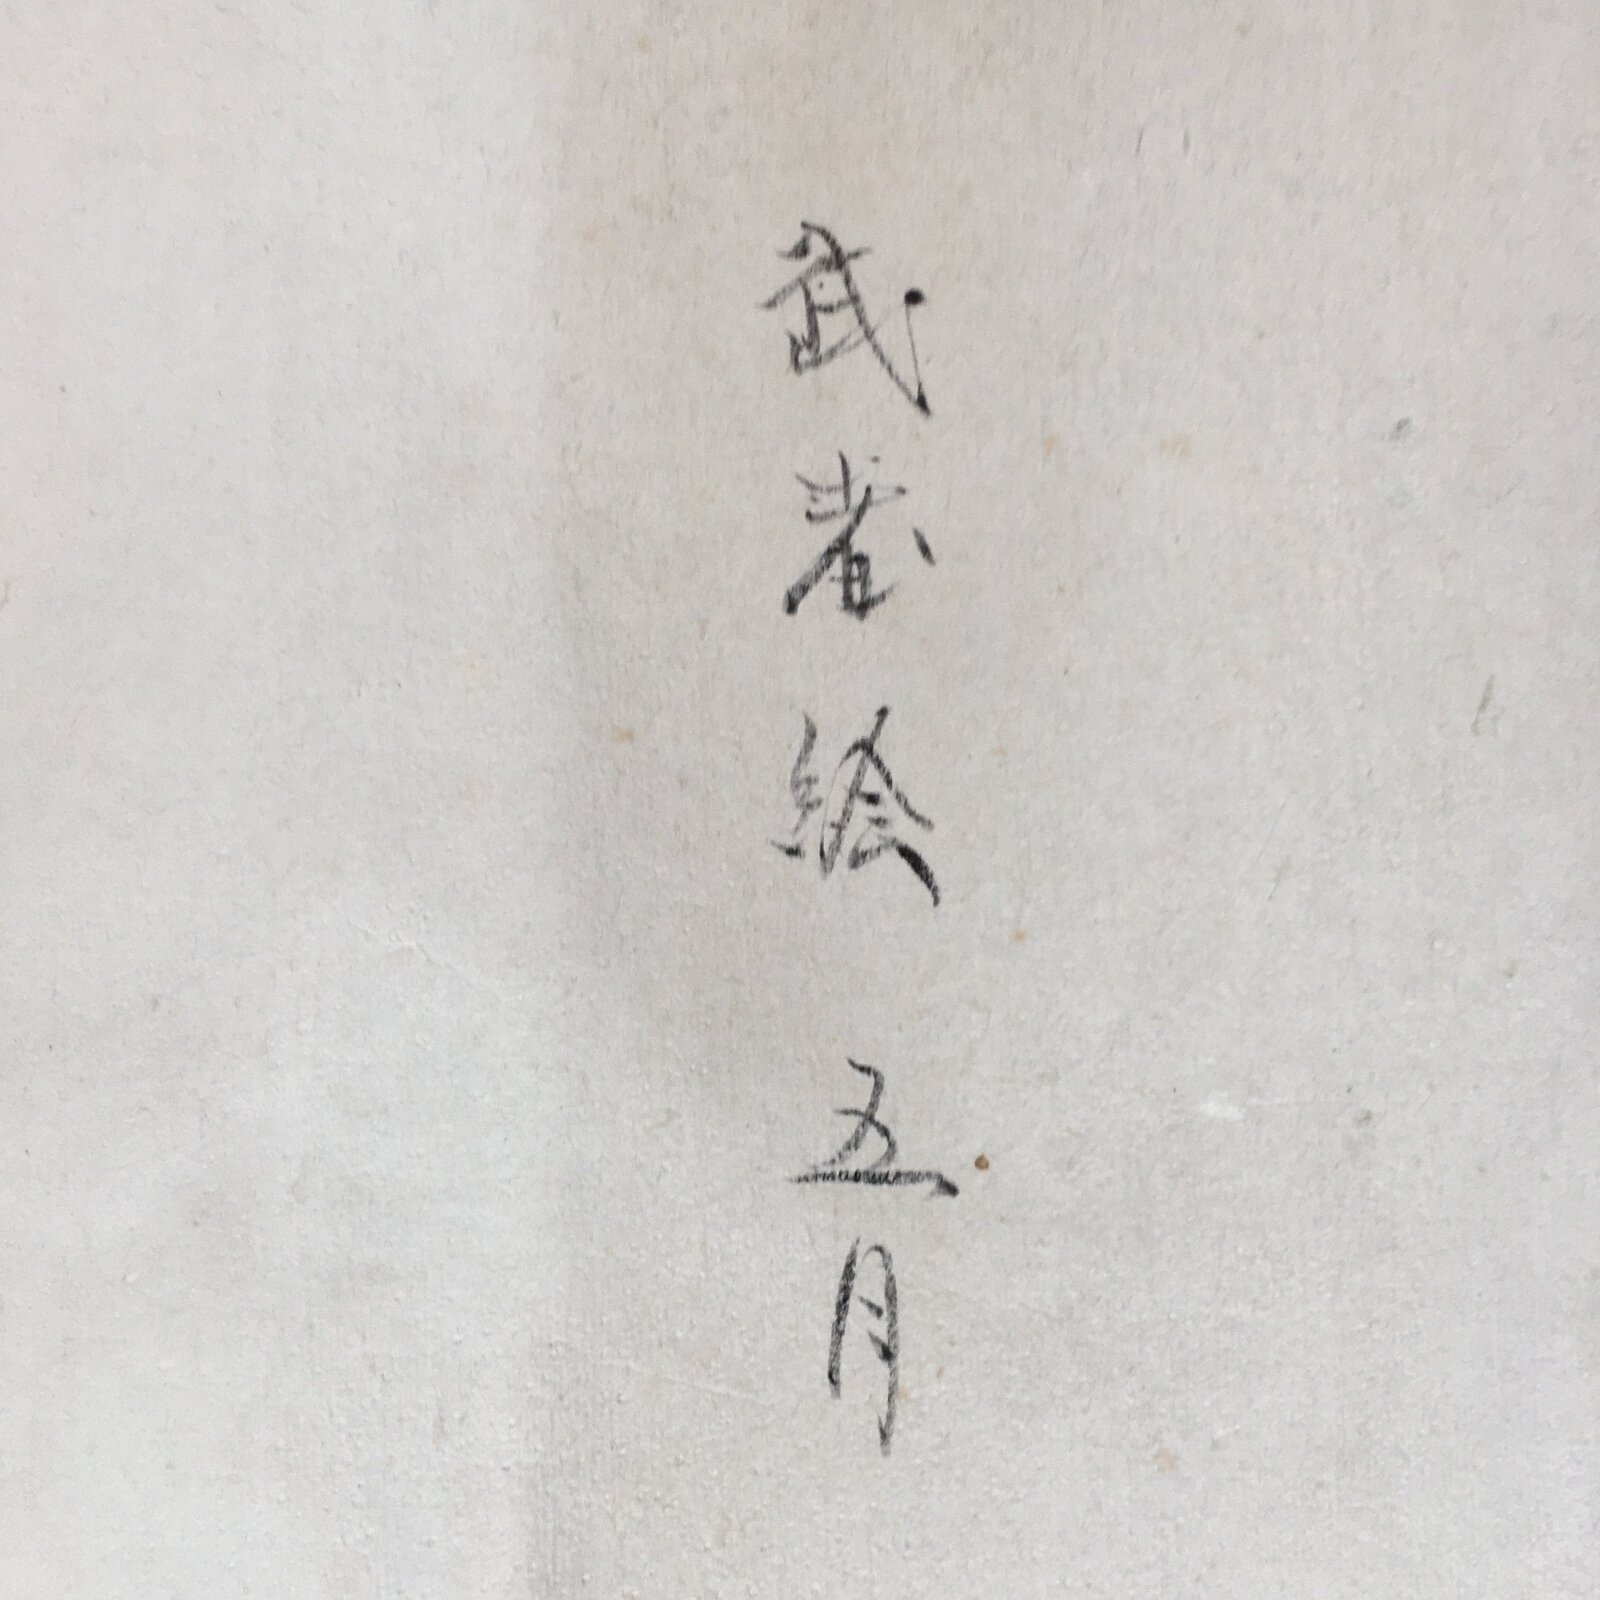 武者絵 五月